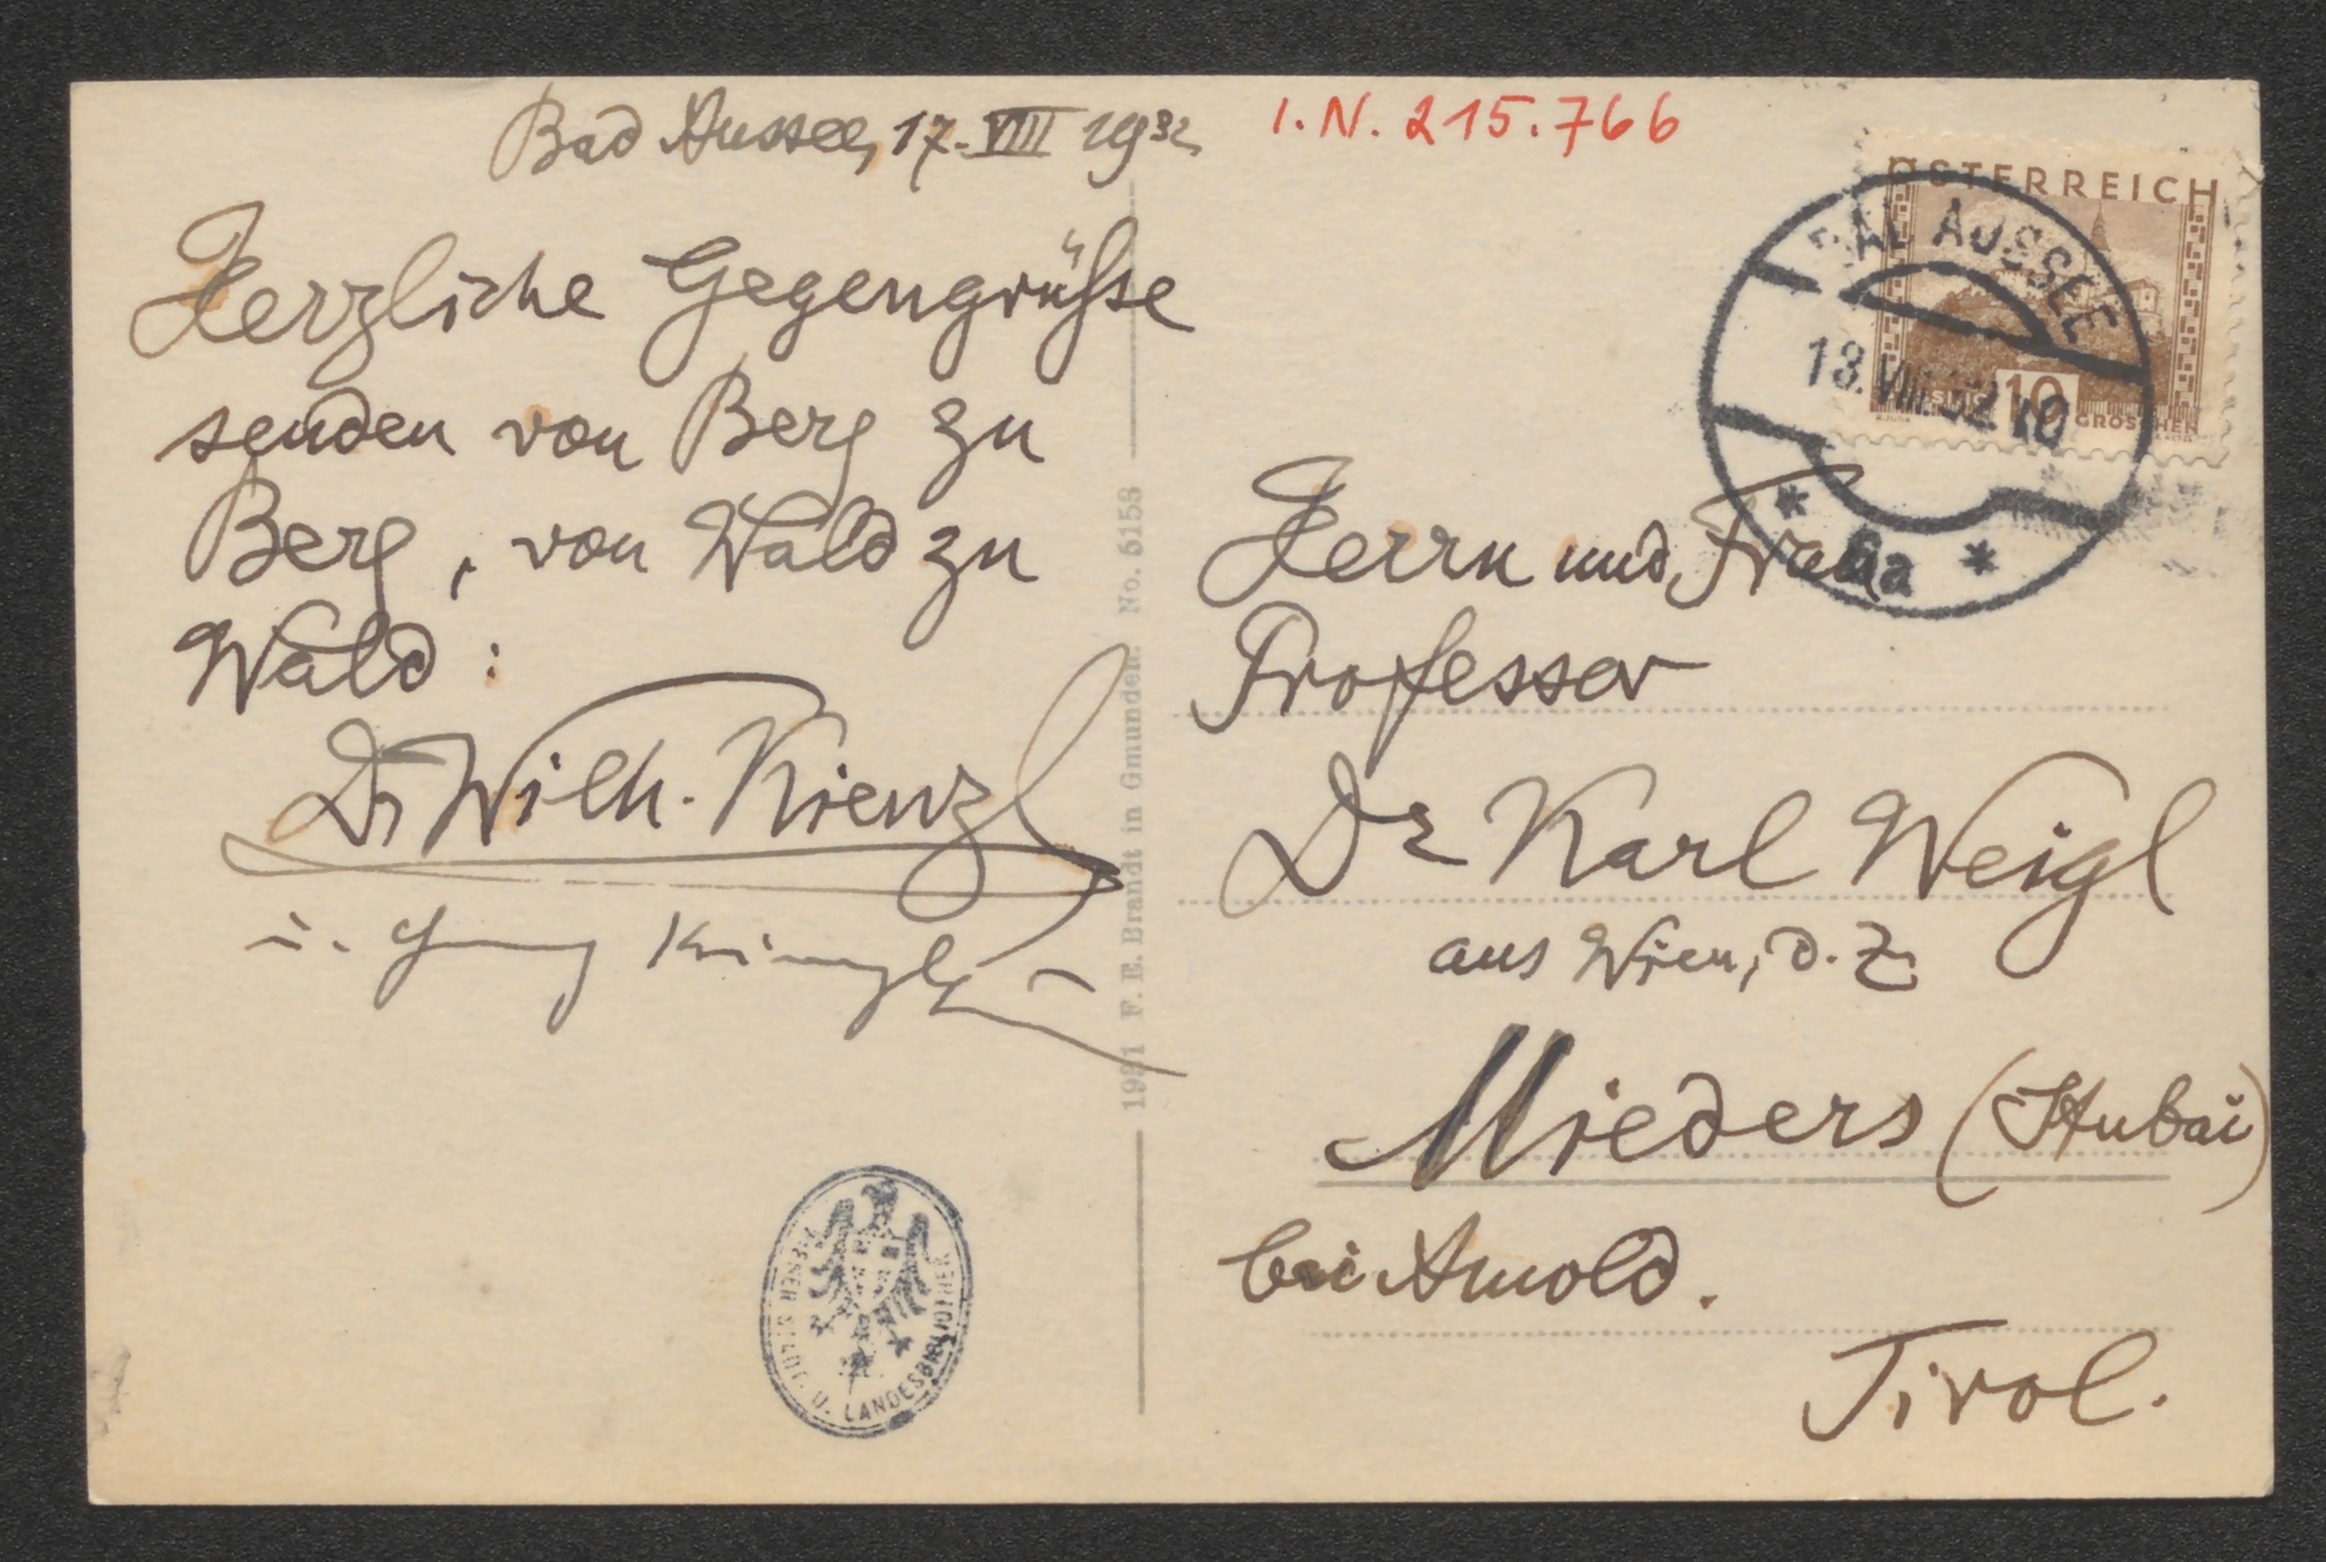 Bad Aussee, 17. VIII 1932
I.N. 215.766
Herzliche Gegengrüsse
senden von Berg zu
Berg, von Wald zu
Wald:
Dr Wilh. Kienzl
u. Henny Kienzl
1931 F. E. Brandt in Gmunden. No. 5153
WIENER STADT- U. LANDESBIBLIOTHEK
ÖSTERREICH
10
GROSCHEN
BAD AUSSEE
18.VIII.32 10
* 6a *
Herrn und Frau
Professor
Dr Karl Weigl
aus Wien, d. Z.
Mieders (Stubai)
bei Arnold.
Tirol.